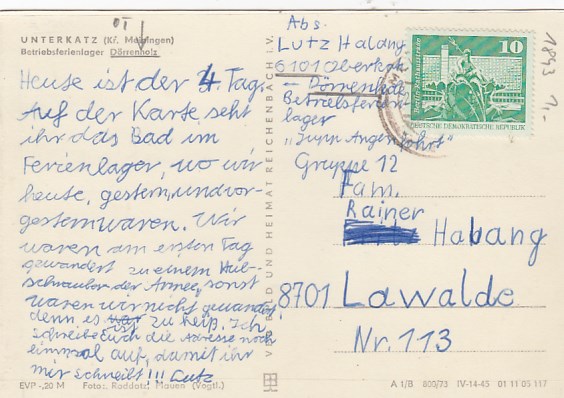 OT
UNTERKATZ (Kr. Meiningen)
Betriebsferienlager Dörrenholz
Heute ist der 4. Tag.
Auf der Karte seht
ihr das Bad im
Ferienlager, wo wir
heute, gestern, und vor-
gestern waren. Wir
waren am ersten Tag
gewandert zu einem Hub-
schrauber der Armee, sonst
waren wir nicht gewandert
denn es war zu heiß. Ich
schreibe Euch die Adresse noch
einmal auf, damit ihr
mir schreibt!!! Lutz
EVP -,20 M Foto: Roddatz, Plauen (Vogtl.)
VERLAG BILD UND HEIMAT REICHENBACH I. V.
Abs.
Lutz Habang
6101 Oberkatz
Betriebsferien-
lager
Gruppe 12
Fam.
Rainer
Habang
8701 Lawalde
Nr. 113
A 1/B 800/73 IV-14-45 01 11 05 117
10
DEUTSCHE DEMOKRATISCHE REPUBLIK
1843
1,-